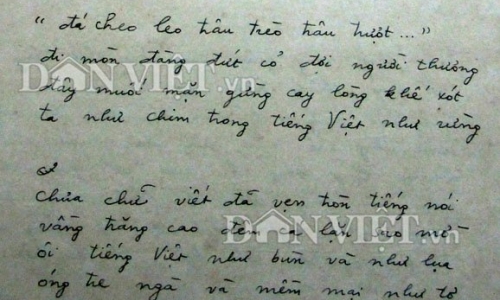 “ đá cheo leo trâu trèo trâu trượt... ”
đi mòn đàng đứt cỏ đợi người thương
DÂNVIỆT.vn
đây muối mặn gừng cay lòng khế xót
ta như chim trong tiếng Việt như rừng
2
Chưa chữ viết đã vẹn tròn tiếng nói
vầng trăng cao đêm cá lặn sao mờ
DÂNVIỆT.vn
ôi tiếng Việt như bùn và như lụa
óng tre ngà và mềm mại như tơ